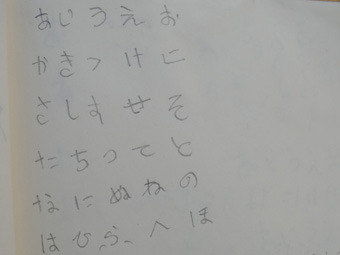 あじうえお
かきつけに
さしすせそ
たちってと
なにぬねの
はひふへほ